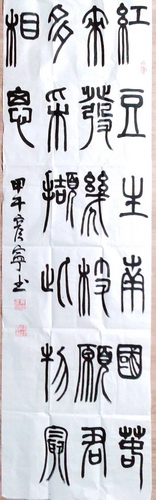 紅豆生南國萅
來發幾枝願君
多采擷此物最
相思
甲午